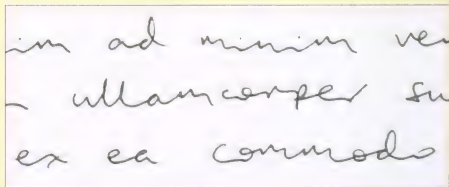 im ad minim ve
ullamcorper su
ex ea commodo